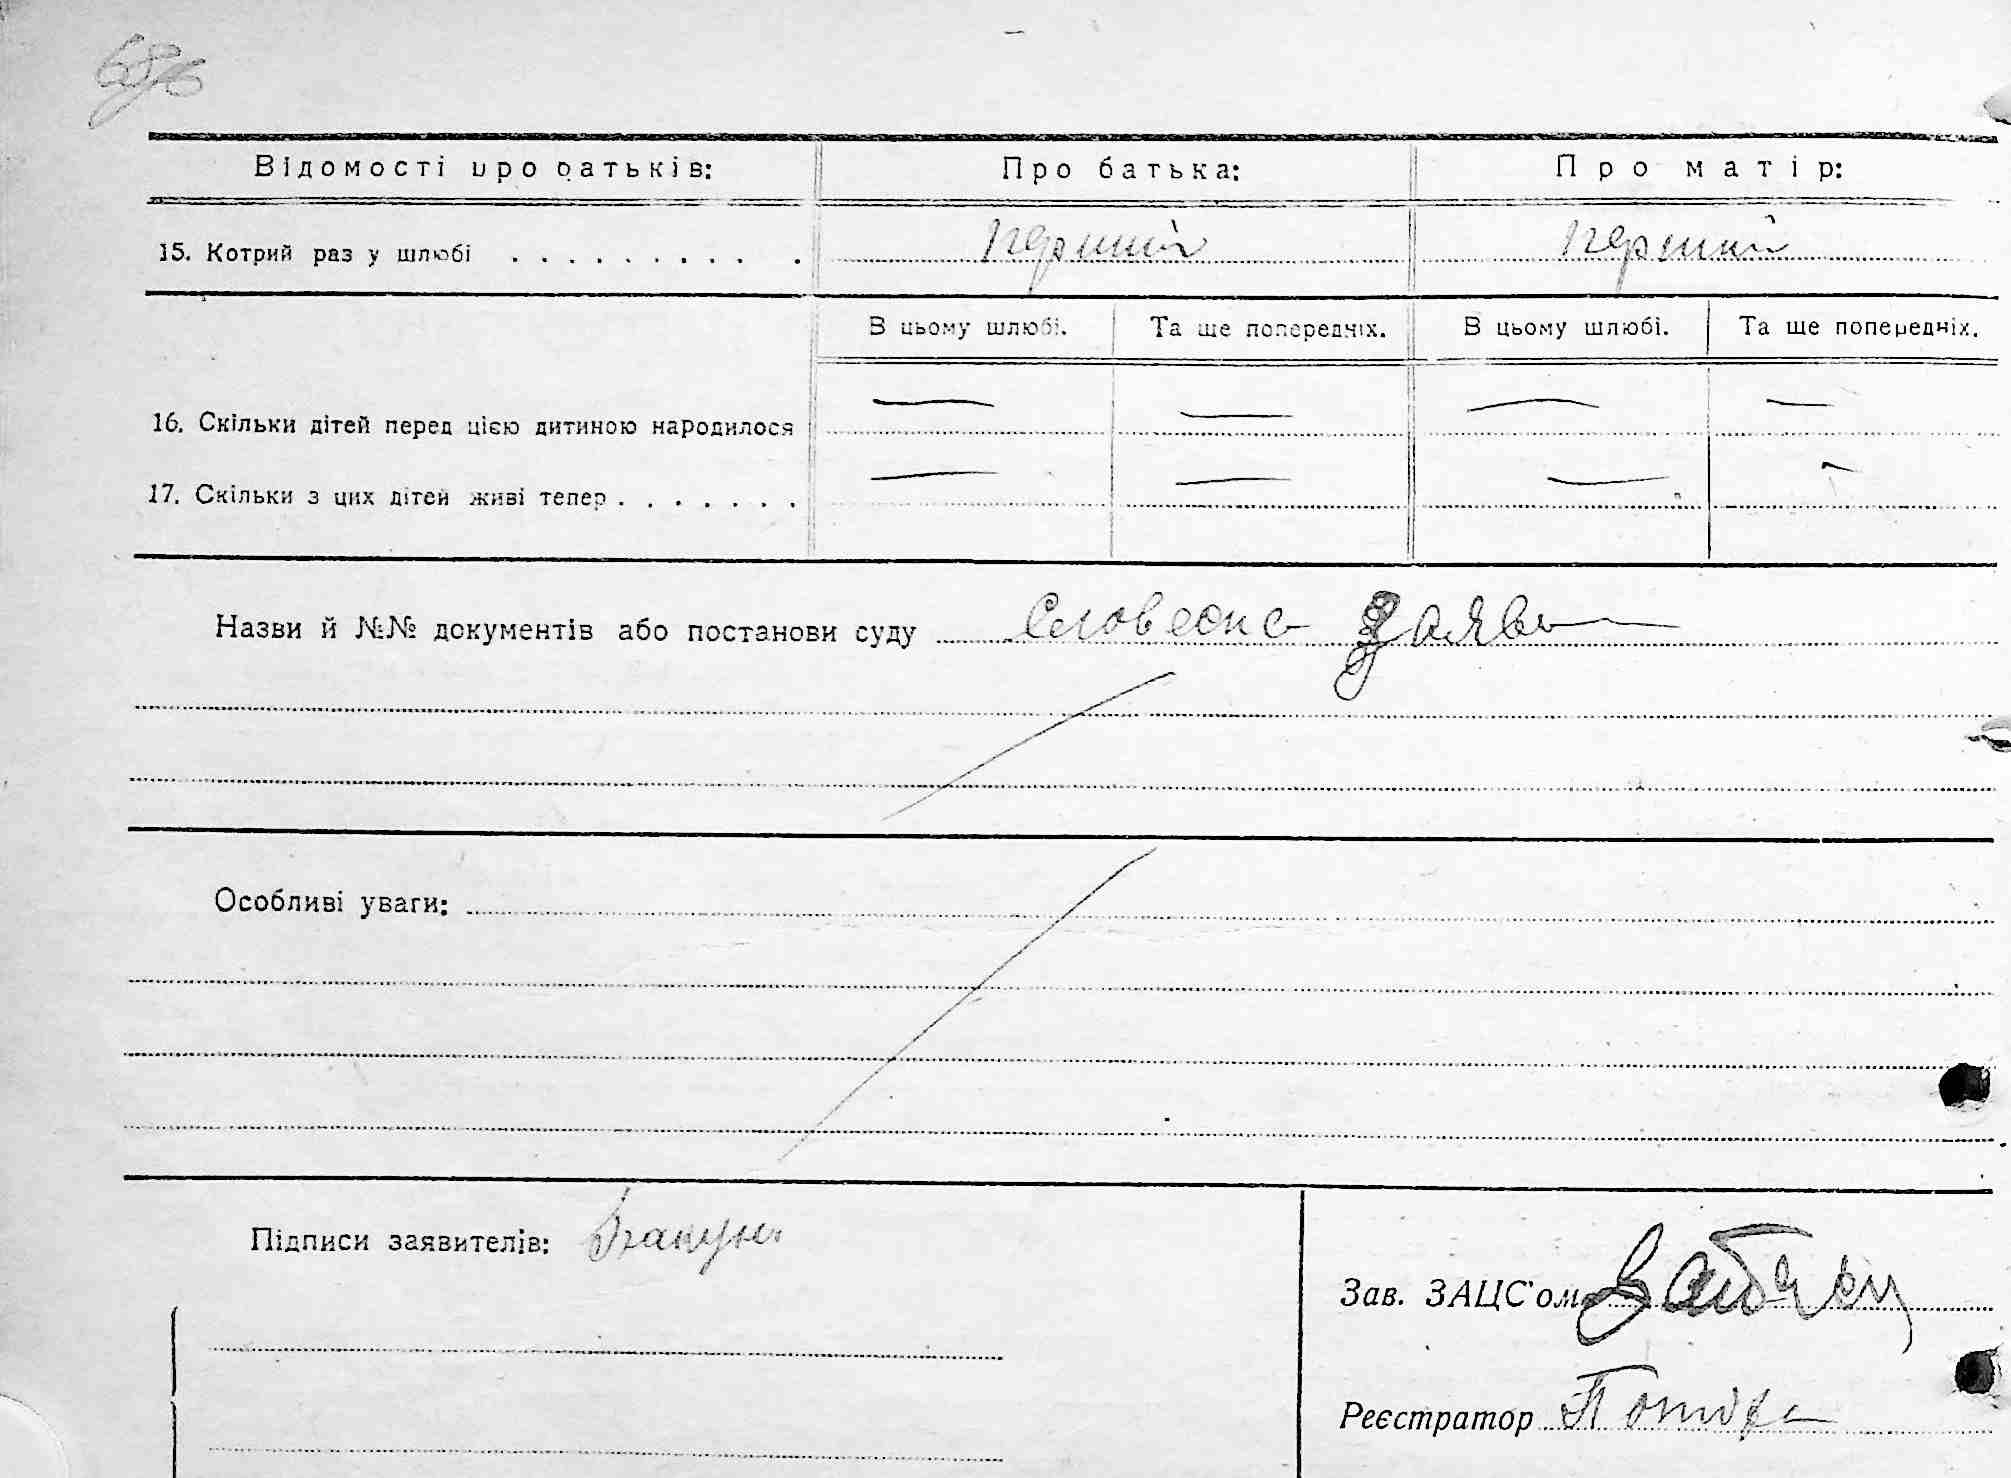 Відомості про батьків: Про батька: Про матір:
15. Котрий раз у шлюбі . . . . . . . . . . перший перший
В цьому шлюбі. Та ще попередніх. В цьому шлюбі. Та ще попередніх.
16. Скільки дітей перед цією дитиною народилося — — — —
17. Скільки з цих дітей живі тепер . . . . . . . — — — —
Назви й №№ документів або постанови суду Словесна заява
Особливі уваги:
Підписи заявителів:
Зав. ЗАЦС'ом
Реєстратор